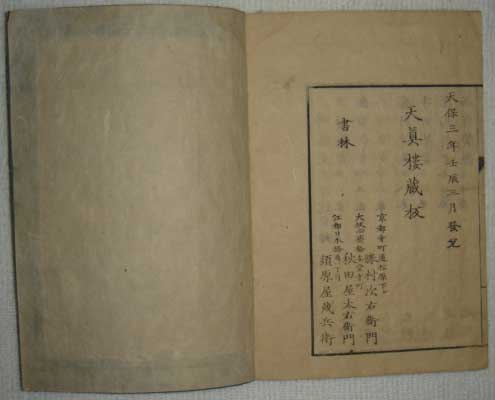 天保三年壬辰三月發兌
天眞樓藏板
書林
京都寺町通松原下ル
勝村次右衛門
大坂心斎橋安堂寺町
秋田屋太右衛門
江都日本橋通一丁目
須原屋茂兵衛